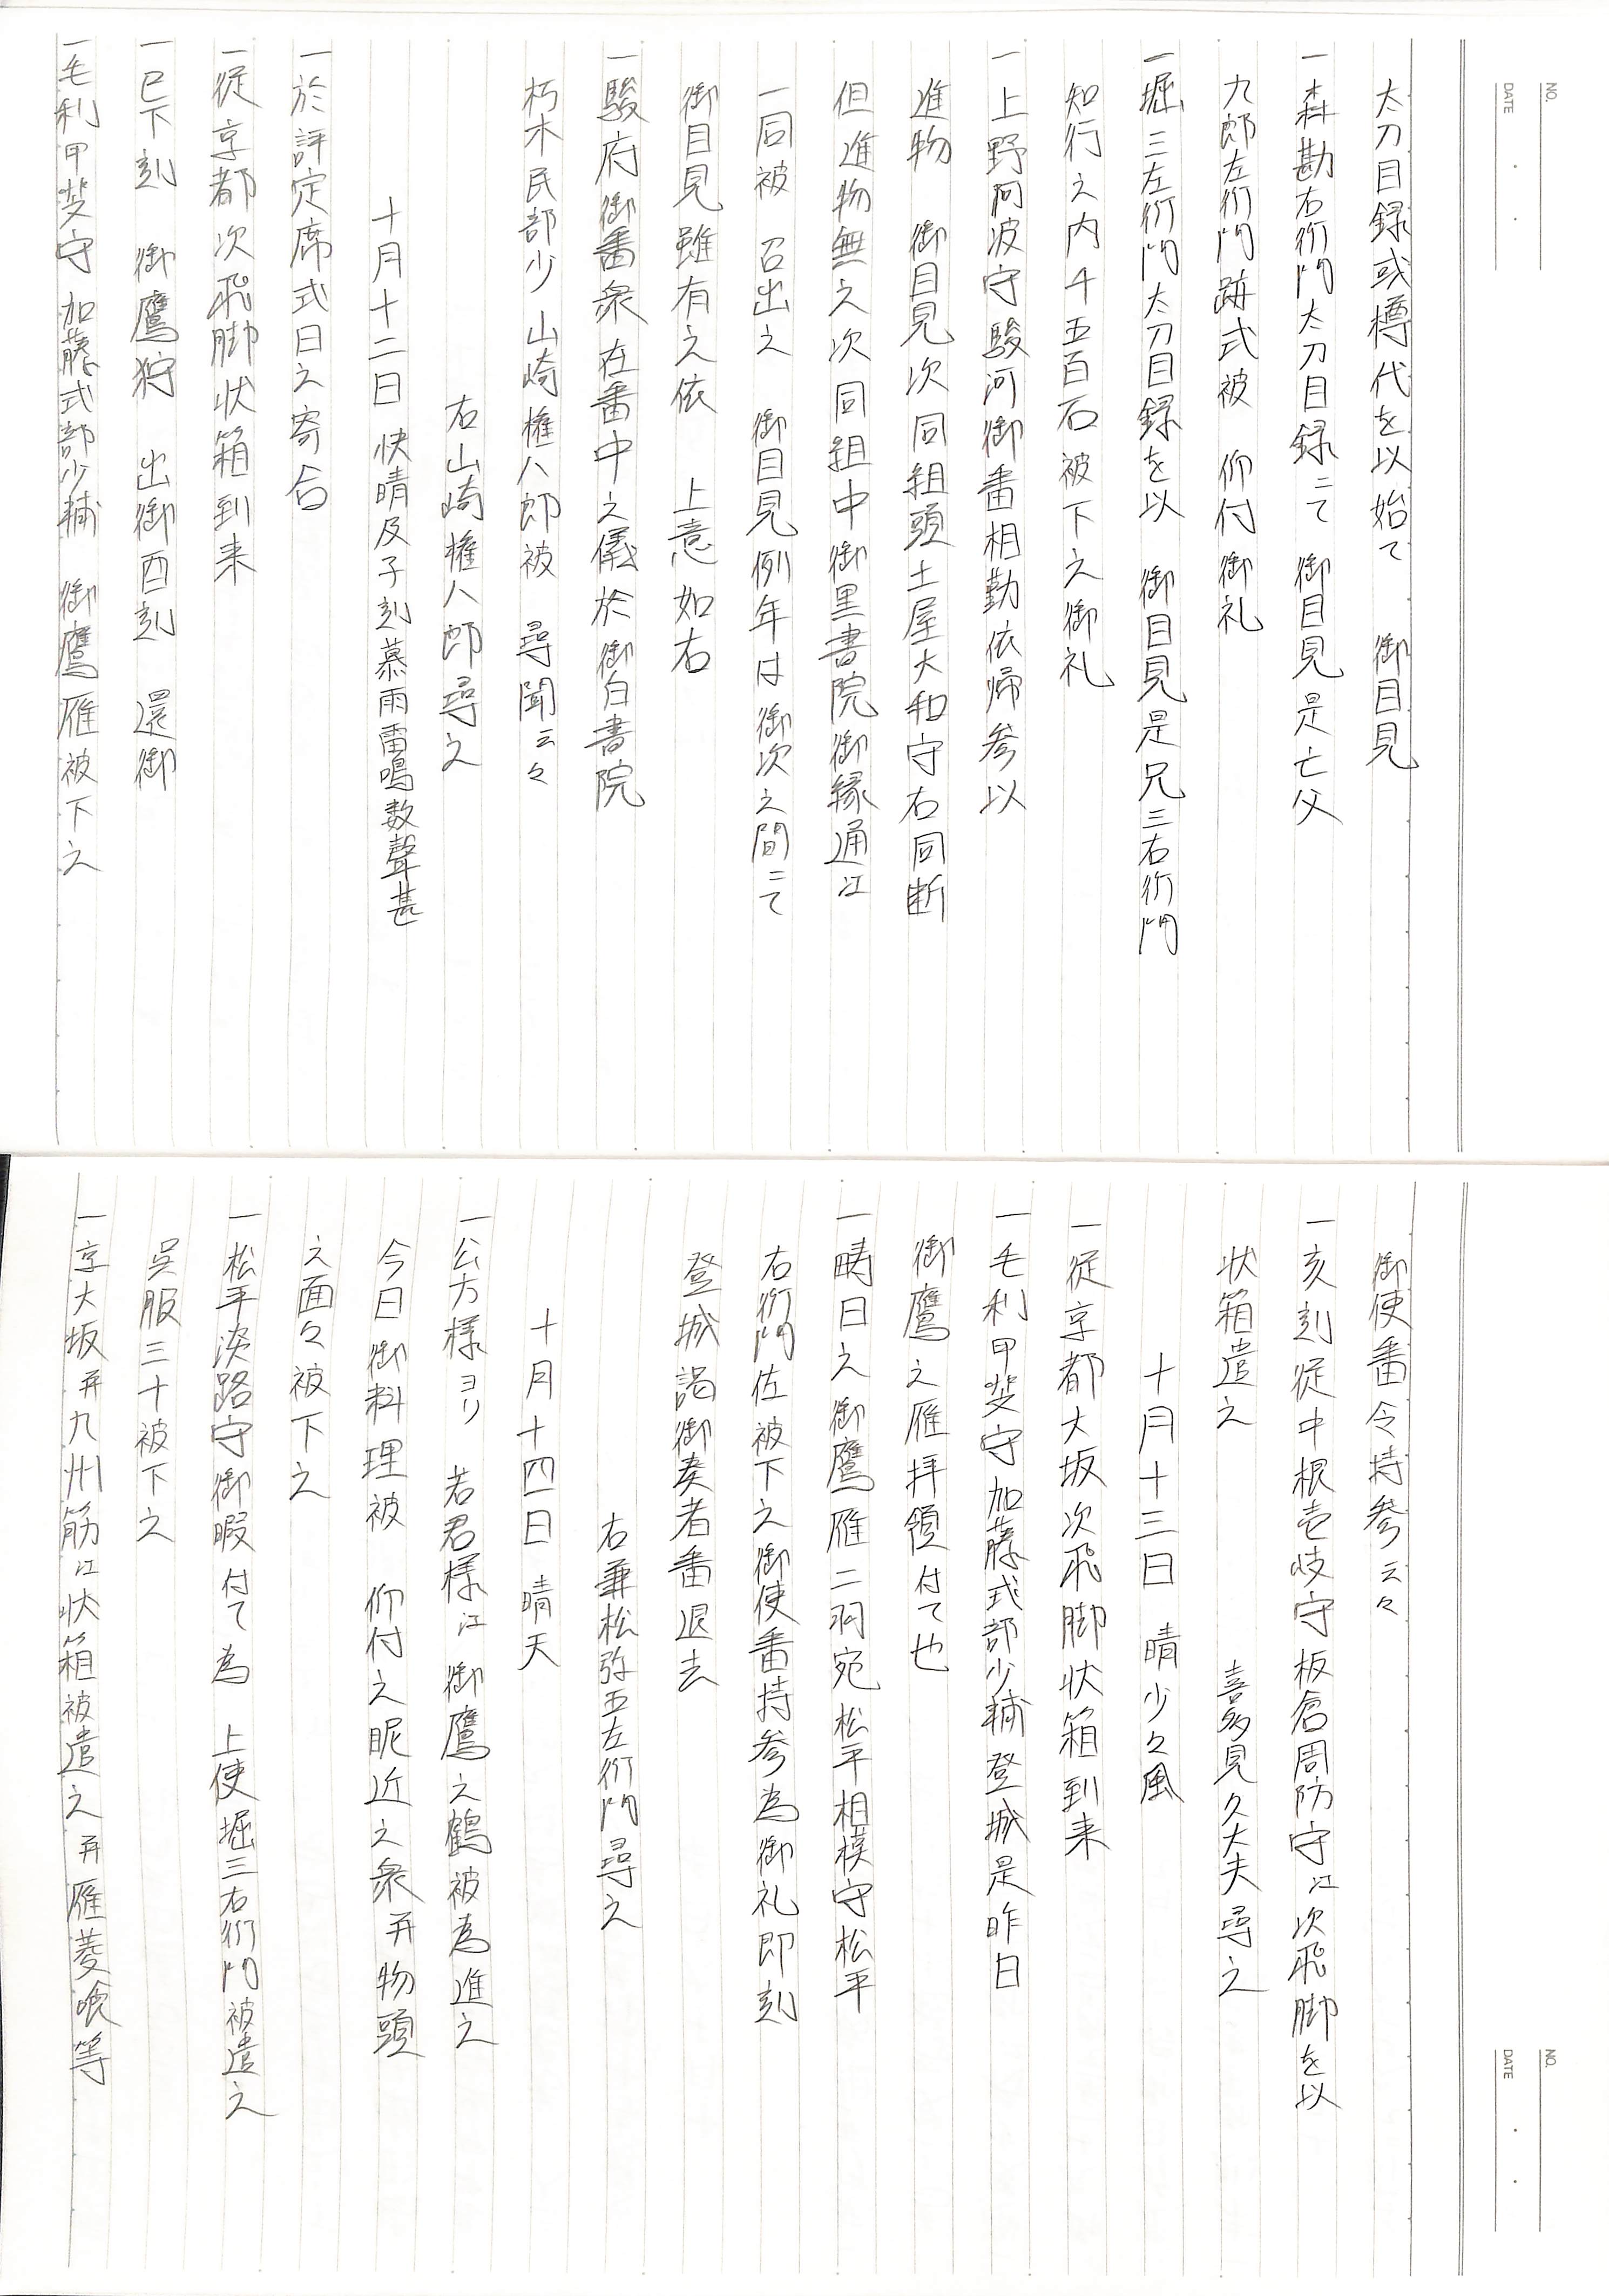 NO.
DATE
太刀目録或樽代を以始て　御目見
一森勘右衛門太刀目録ニて　御目見是亡父
九郎左衛門跡式被　仰付御礼
一堀三左衛門太刀目録を以　御目見是兄三右衛門
知行之内千五百石被下之御礼
一上野阿波守駿河御番相勤依帰参以
進物　御目見次同組頭土屋大和守右同断
但進物無之次同組中御黒書院御縁通江
一同被　召出之　御目見例年は御次之間ニて
御目見雖有之依　上意如右
一駿府御番衆在番中之儀於御白書院
朽木民部少山崎権八郎被　尋聞云々
右山崎権八郎尋之
十月十二日　快晴及子刻慕雨雷鳴数聲甚
一於評定席式日之寄合
一従京都次飛脚状箱到来
一巳下刻　御鷹狩　出御酉刻　還御
一毛利甲斐守　加藤式部少輔　御鷹雁被下之
NO.
DATE
御使番令持参云々
一亥刻従中根壱岐守板倉周防守江次飛脚を以
状箱遣之　喜多見久大夫尋之
十月十三日　晴少々風
一従京都大坂次飛脚状箱到来
一毛利甲斐守加藤式部少輔登城是昨日
御鷹之雁拝領付て也
一疇日之御鷹雁二羽宛松平相模守松平
右衛門佐被下之御使番持参為御礼即刻
登城謁御奏者番退去
右兼松弥五左衛門尋之
十月十四日　晴天
一公方様ヨリ　若君様江御鷹之鶴被為進之
今日御料理被　仰付之昵近之衆并物頭
之面々被下之
一松平淡路守御暇付て為　上使堀三右衛門被遣之
呉服三十被下之
一京大坂并九州筋江状箱被遣之并雁菱喰等